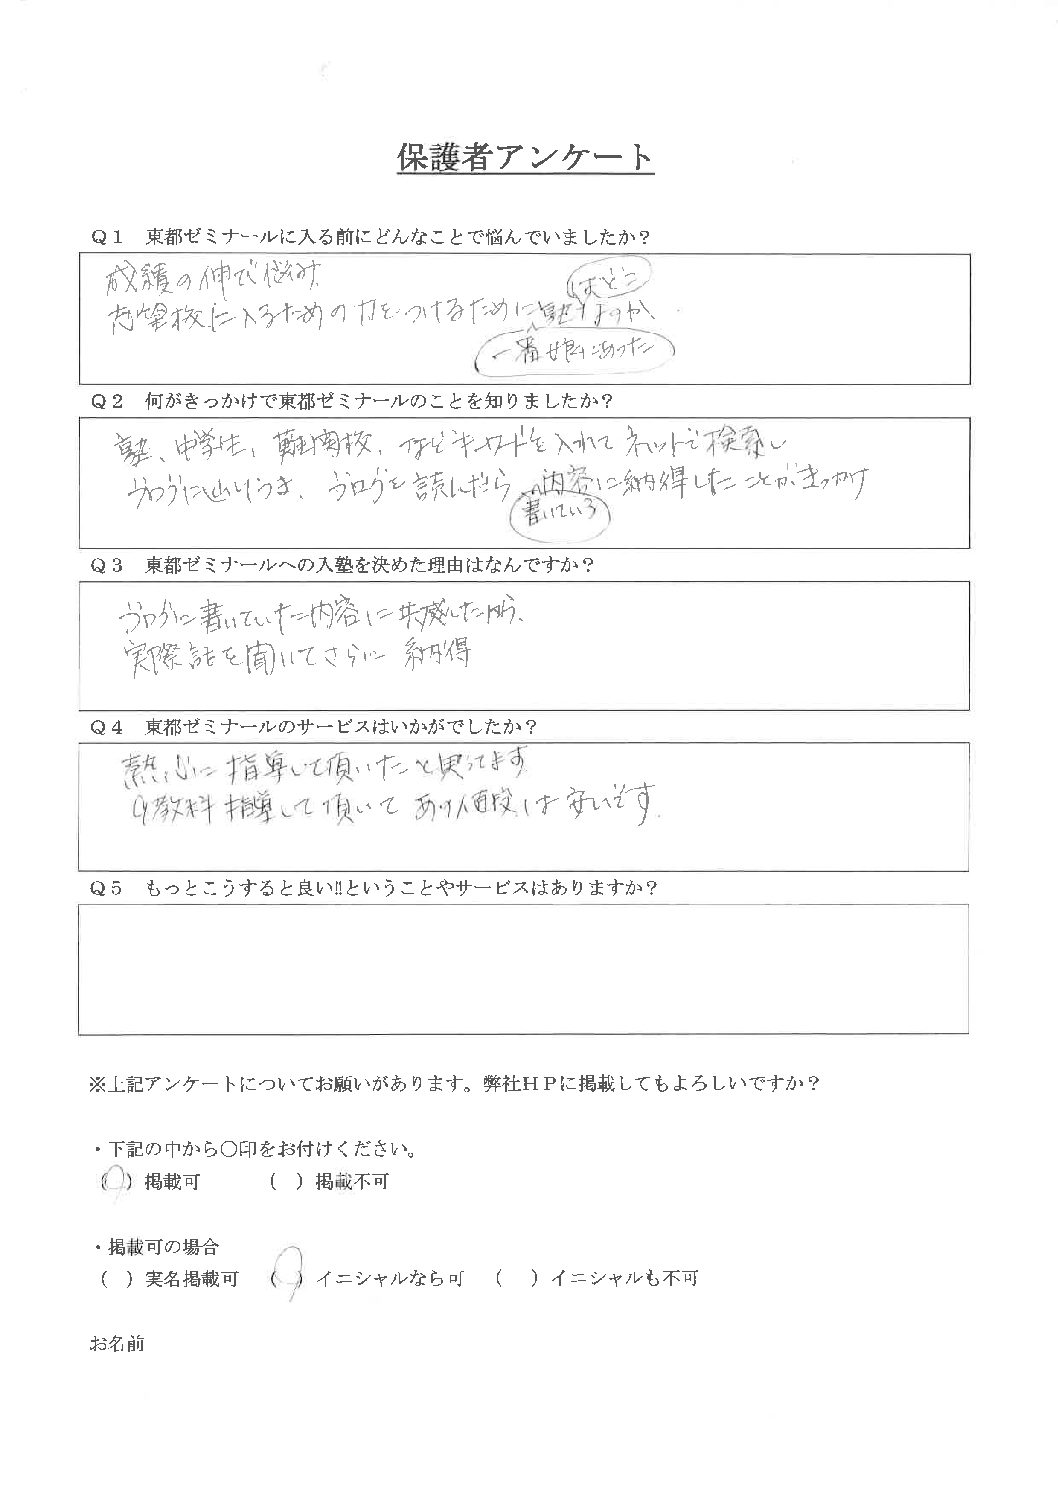 保護者アンケート
Q1 東都ゼミナールに入る前にどんなことで悩んでいましたか？
成績の伸び悩み
はどこ
志望校に入るための力をつけるために塾なのか、
一番娘にあった
Q2 何がきっかけで東都ゼミナールのことを知りましたか？
塾、中学生、難関校、などキーワードを入れてネットで検索し
ブログに辿りつき、ブログを読んだら内容に納得したことがきっかけ
書いている
Q3 東都ゼミナールへの入塾を決めた理由はなんですか？
ブログに書いていた内容に共感したから、
実際話を聞いてさらに納得
Q4 東都ゼミナールのサービスはいかがでしたか？
熱心に指導して頂いたと思ってます
9教科指導して頂いてあの値段は安いです.
Q5 もっとこうすると良い!!ということやサービスはありますか？
※上記アンケートについてお願いがあります。弊社HPに掲載してもよろしいですか？
・下記の中から〇印をお付けください。
（〇）掲載可 （ ）掲載不可
・掲載可の場合
（ ）実名掲載可 （〇）イニシャルなら可 （ ）イニシャルも不可
お名前